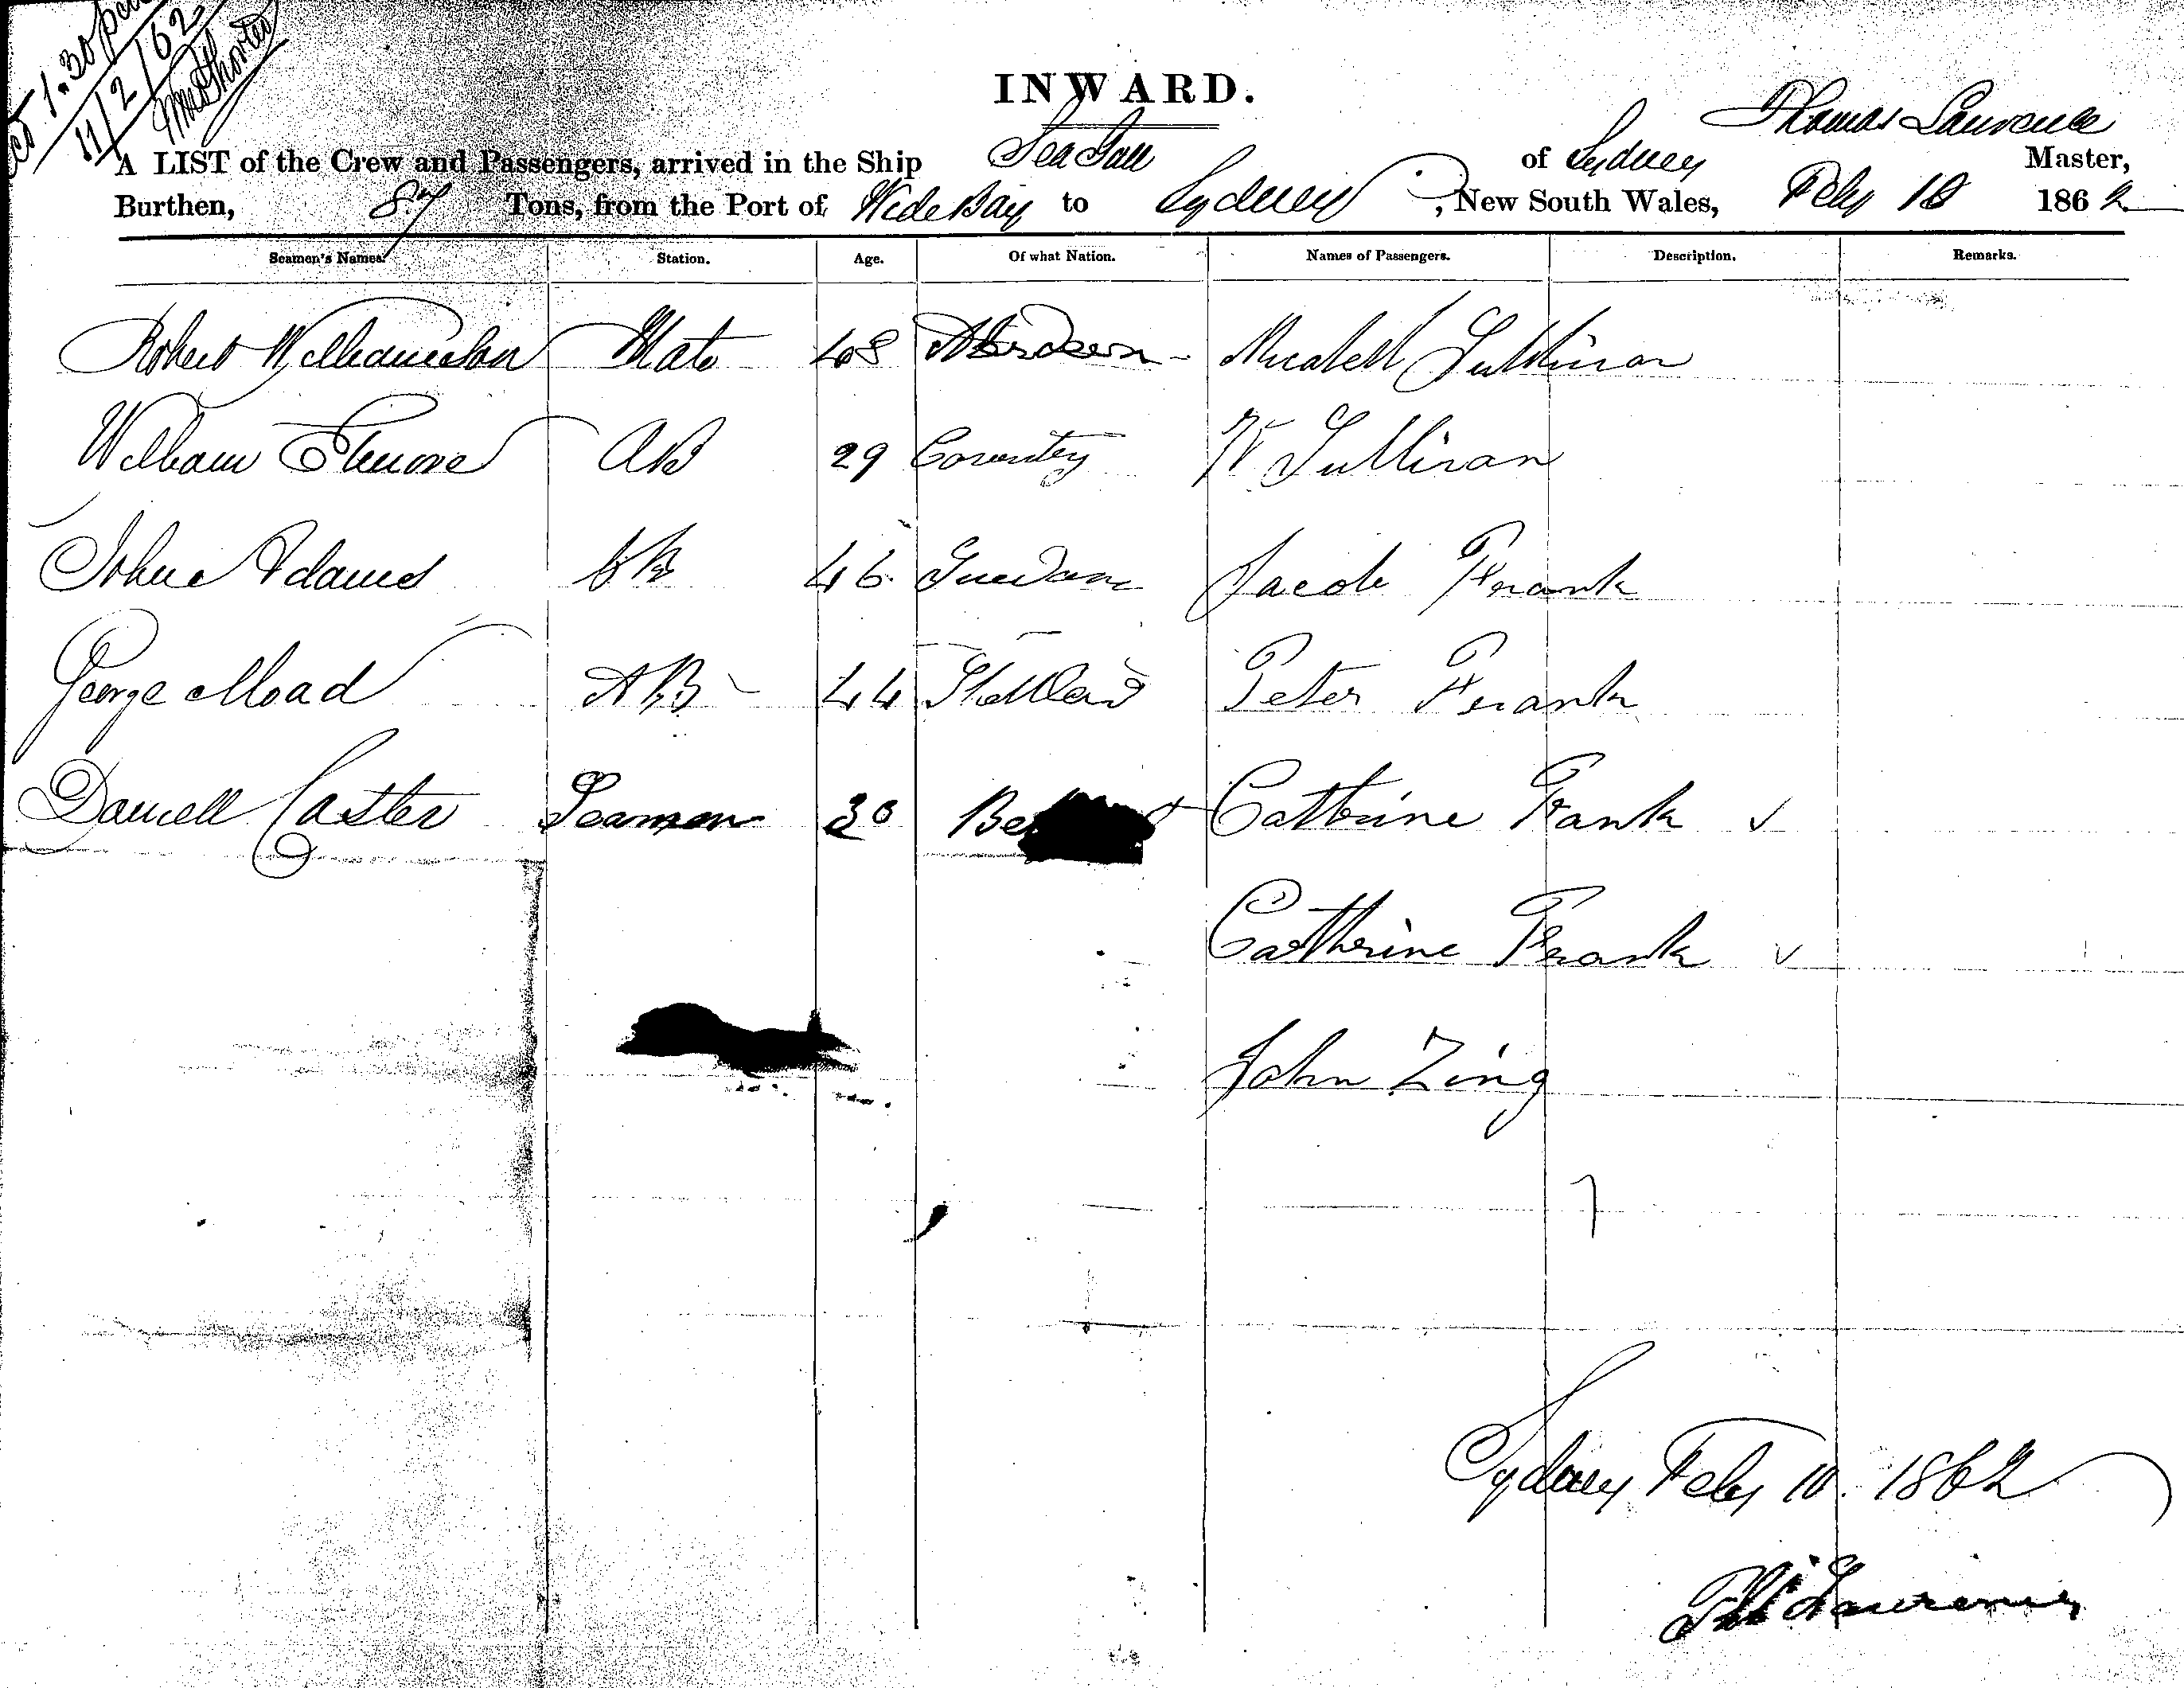 1.30 pm
11/2/62
INWARD.
Thomas Lawrence
A LIST of the Crew and Passengers, arrived in the Ship Sea Gull of Sydney Master,
Burthen, 87 Tons, from the Port of Wide Bay to Sydney, New South Wales, Feby 10 1862
Seamen's Names. Station. Age. Of what Nation. Names of Passengers. Description. Remarks.
Robert Williamson Mate 48 Aberdeen Sullivan
William AB 29 Coventry W Sullivan
John Adams AB 46 Jacob Frank
George Moad AB 44 Shetland Peter Frank
Daniell Caster Seaman 30 Catterine Frank ✓
Catherine Frank ✓
John Zing
7
Sydney Feby 10. 1862
Thos Lawrence